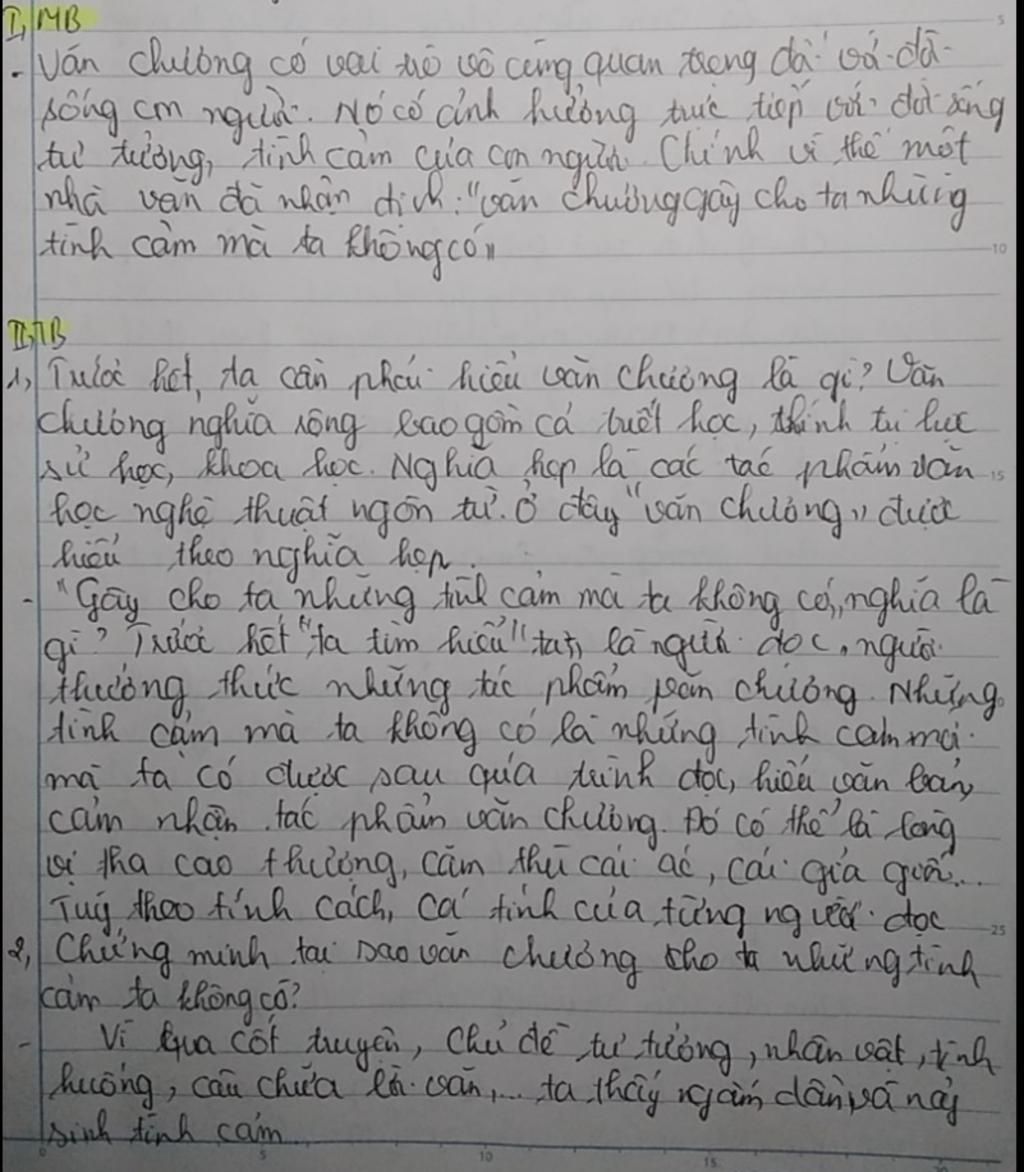 I, MB
- Văn chương có vai trò vô cùng quan trọng đối với đời
sống cm người. Nó có ảnh hưởng trực tiếp với đời sống
tư tưởng, tình cảm của con người. Chính vì thế một
nhà văn đã nhận định: "văn chương gây cho ta những
tình cảm mà ta không có"
II, TB
1, Trước hết, ta cần phải hiểu văn chương là gì? Văn
chương nghĩa rộng bao gồm cả triết học, chính trị
sử học, khoa học. Nghĩa hẹp là các tác phẩm văn
học nghệ thuật ngôn từ. Ở đây "văn chương" được
hiểu theo nghĩa hẹp.
- "Gây cho ta những tình cảm mà ta không có" nghĩa là
gì? Trước hết ta tìm hiểu "ta" là người đọc, người
thưởng thức những tác phẩm văn chương. Những
tình cảm mà ta không có là những tình cảm mới
mà ta có được sau quá trình đọc, hiểu văn bản,
cảm nhận tác phẩm văn chương. Đó có thể là lòng
vị tha cao thượng, căm thù cái ác, cái giả dối...
Tuỳ theo tính cách, cá tính của từng người đọc
2, Chứng minh tại sao văn chương cho ta những tình
cảm ta không có?
- Vì qua cốt truyện, chủ đề tư tưởng, nhân vật, tình
huống, câu chữ lời văn,... ta thấy ngấm dần và nảy
sinh tình cảm
5
10
15
25
0
5
10
15